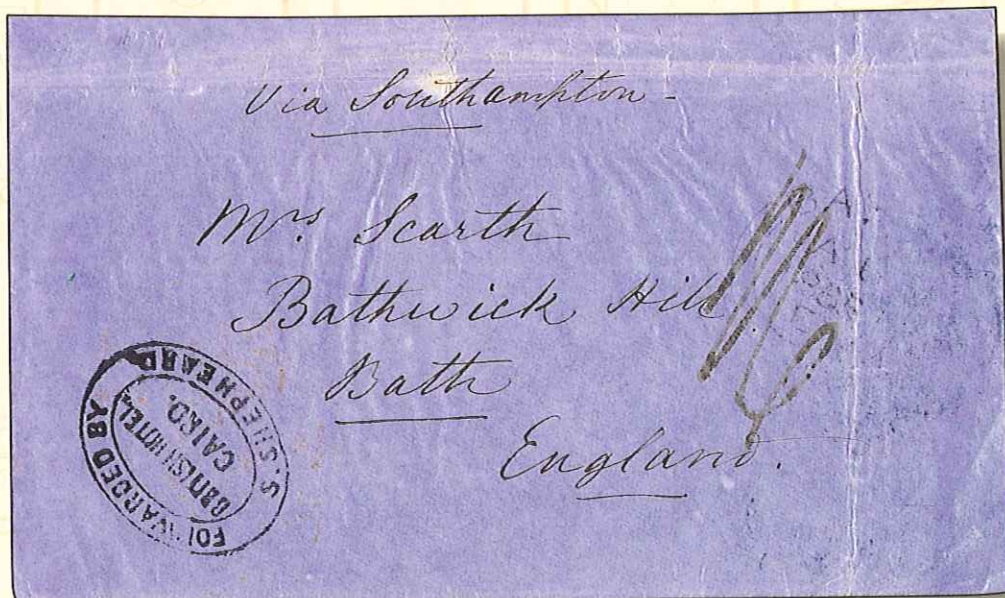 Via Southampton -
Mrs. Scarth
Bathwick Hill
Bath
England.
1/6
FORWARDED BY S. SHEPHEARD
BRITISH HOTEL,
CAIRO.